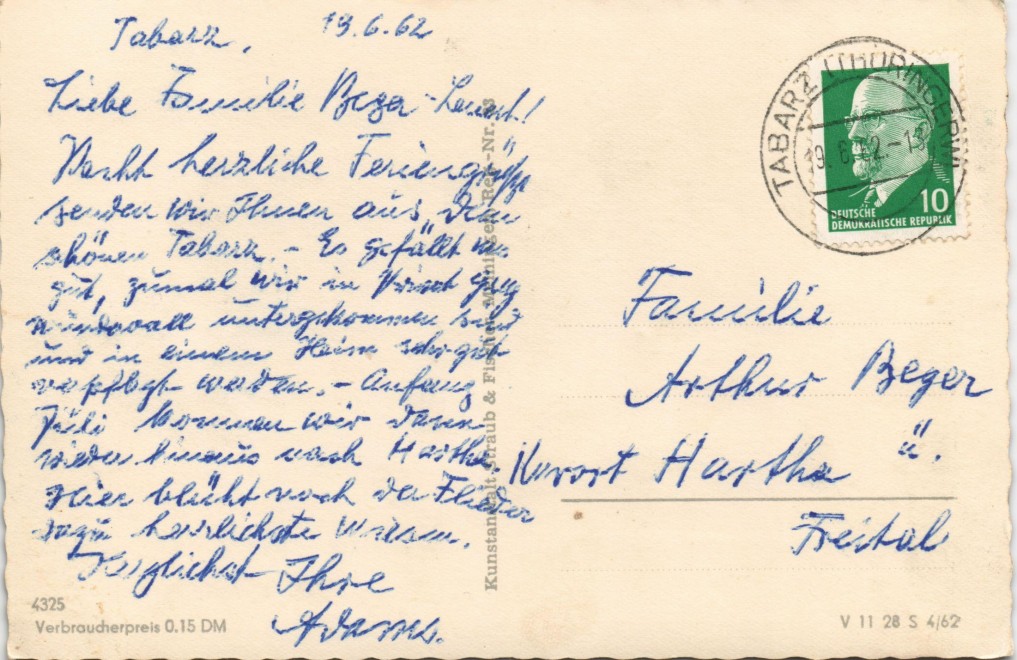 Tabarz, 19.6.62
Liebe Familie Beger-
Recht herzliche Feriengrüße
senden wir Ihnen aus dem
schönen Tabarz. - Es gefällt uns
gut, zumal wir in Privat ganz
wundervoll untergekommen sind
und in einem Heim sehr gut
verpflegt werden. - Anfang
Juli kommen wir dann
wieder hinaus nach Hartha.
Hier blüht noch der Flieder
dazu herrlichste Wiesen.
Herzlichst Ihre
Adams.
4325
Verbraucherpreis 0.15 DM
Kunstanstalt Straub & Fischer Meiningen Reg.-Nr.
TABARZ (THÜRINGERW)
19.6.62.-13
10
DEUTSCHE
DEMOKRATISCHE REPUBLIK
Familie
Arthur Beger
Kurort Hartha ü.
Freital
V 11 28 S 4/62